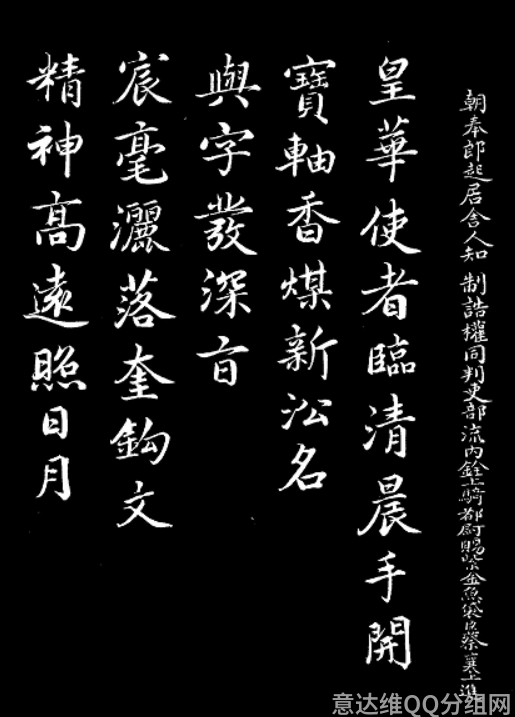 朝奉郎起居舍人知 制誥權同判吏部流内銓上騎都尉賜紫金魚袋臣蔡襄上進
皇華使者臨清晨手開
寶軸香煤新沁名
與字發深旨
宸毫灑落奎鈎文
精神高遠照日月
意达维QQ分组网